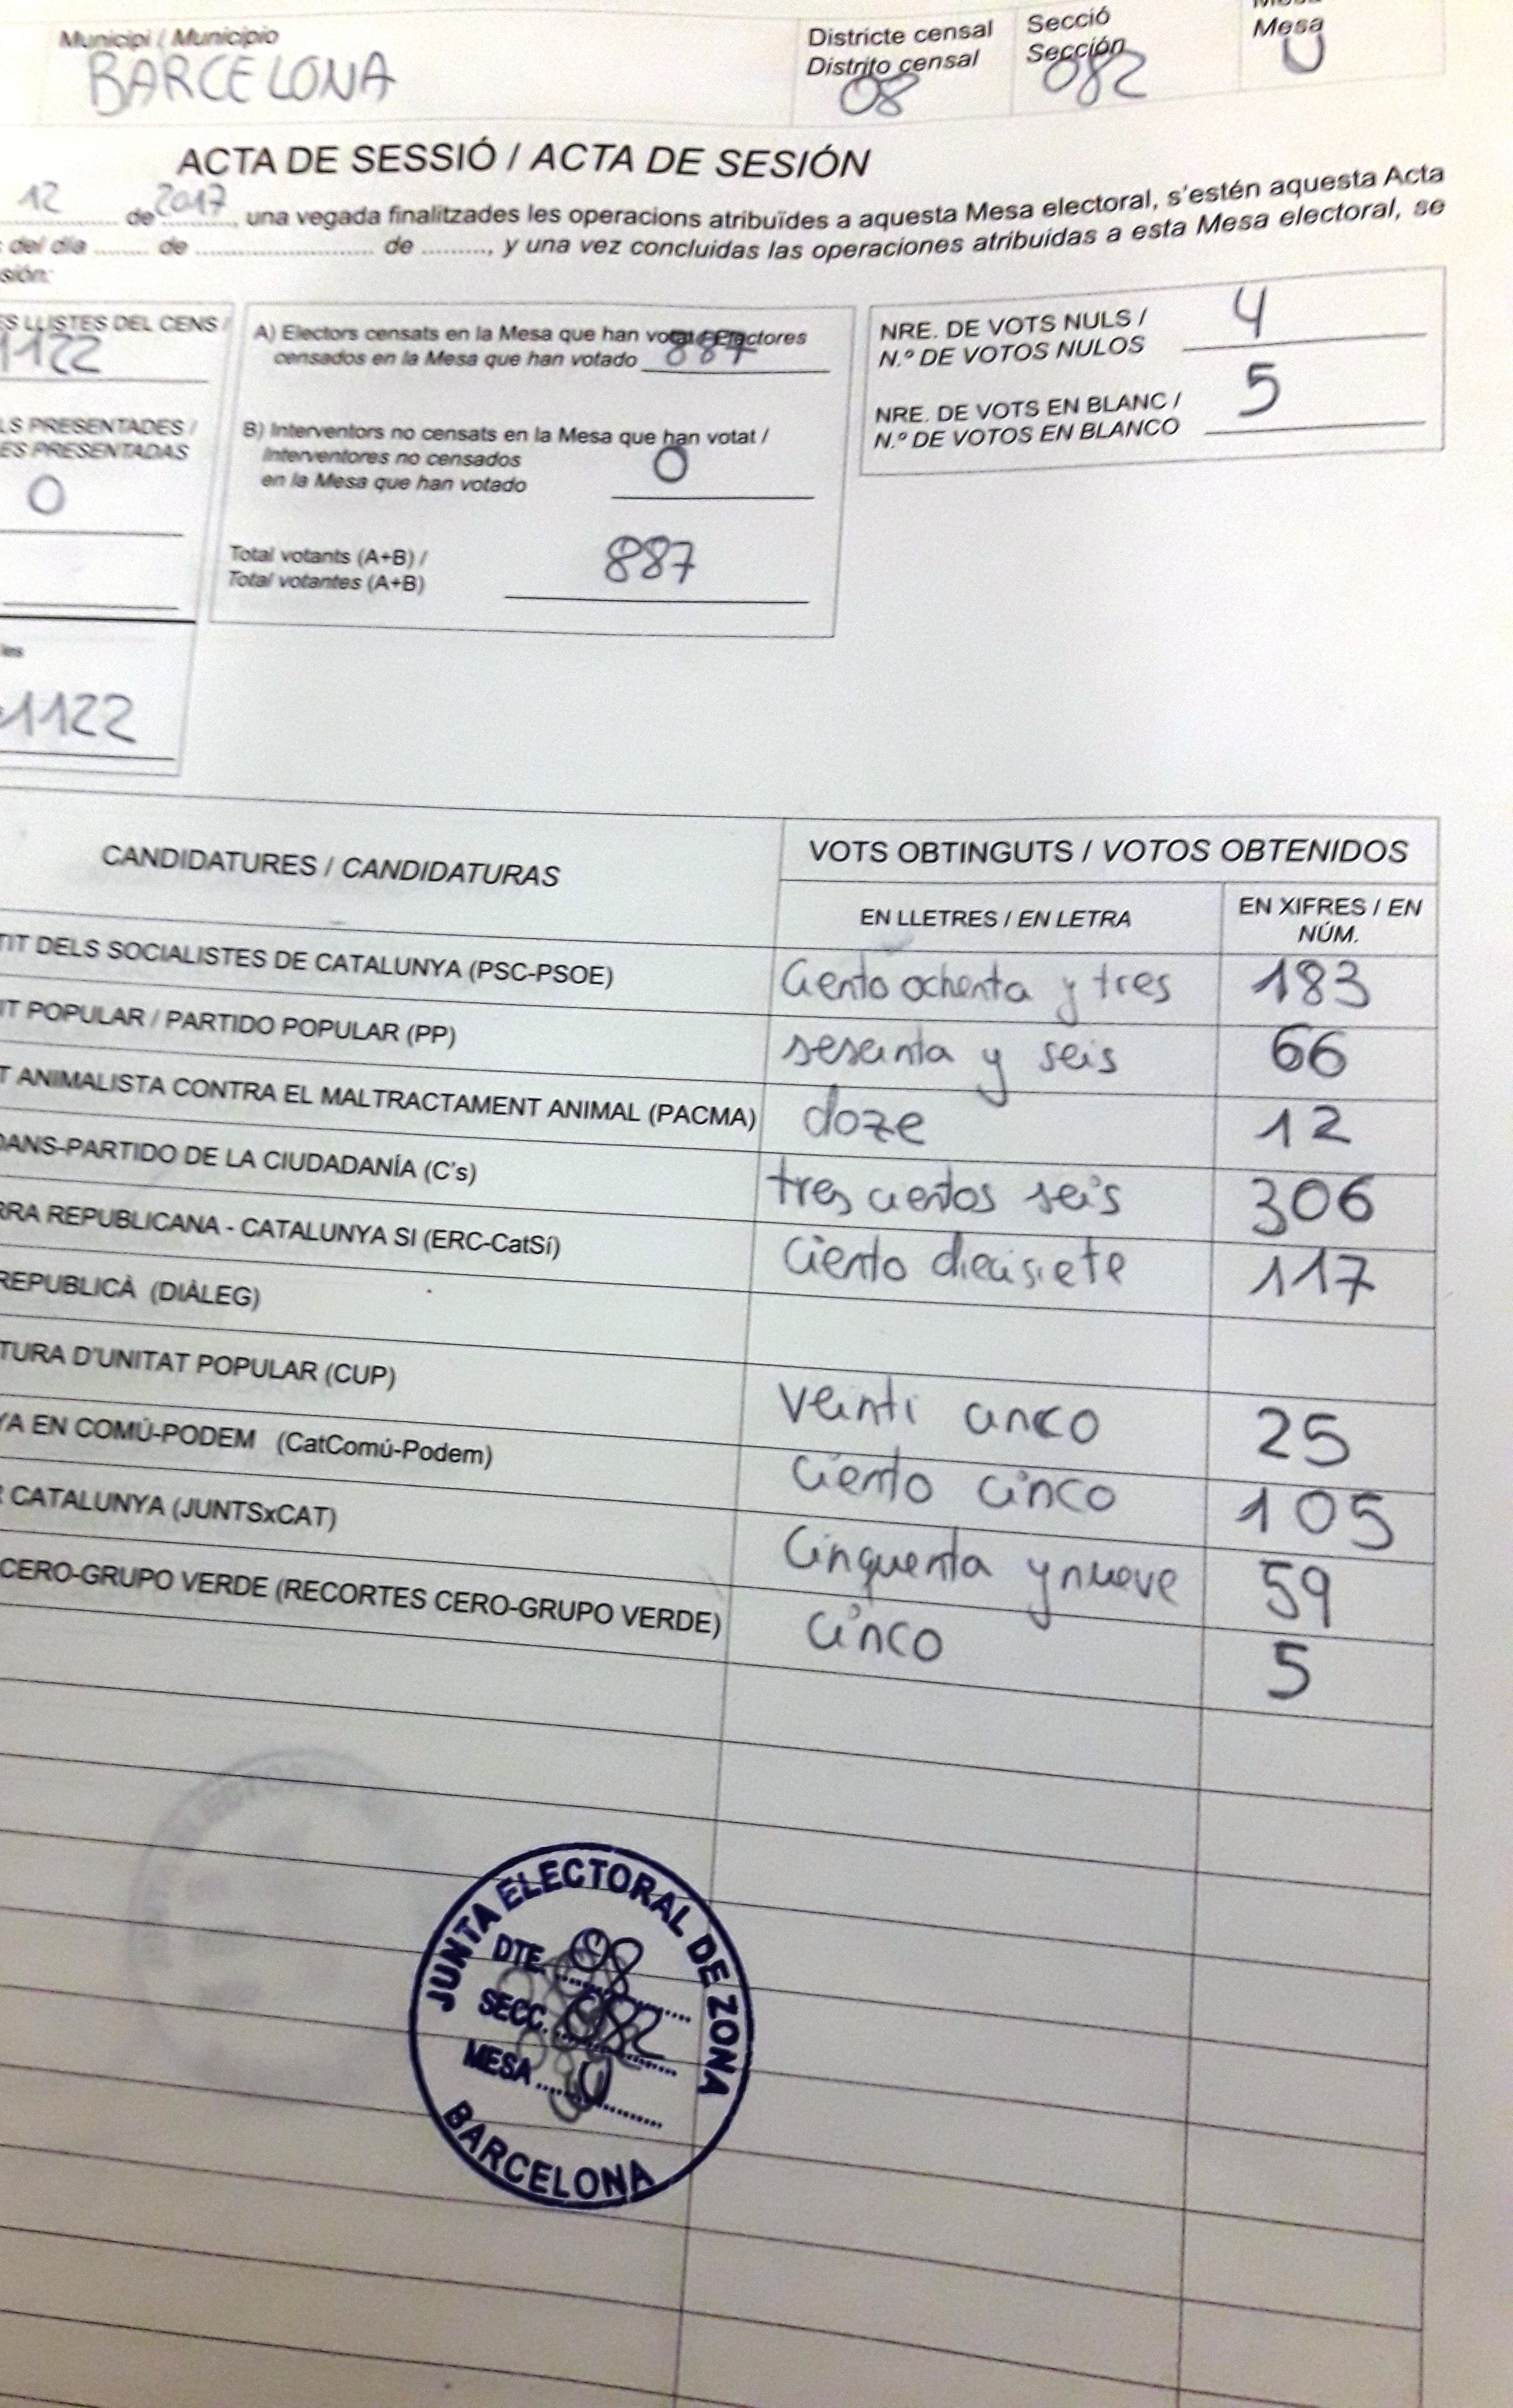 Municipi / Municipio
BARCELONA
Districte censal
Distrito censal
08
Secció
Sección
082
Mesa
U
ACTA DE SESSIÓ / ACTA DE SESIÓN
12 de 2017, una vegada finalitzades les operacions atribuïdes a aquesta Mesa electoral, s'estén aquesta Acta
del día ........ de .......................... de .........., y una vez concluidas las operaciones atribuidas a esta Mesa electoral, se
sión:
ES LLISTES DEL CENS /
1122
LS PRESENTADES /
ES PRESENTADAS
0
les
1122
A) Electors censats en la Mesa que han votat / Electores
censados en la Mesa que han votado 887
B) Interventors no censats en la Mesa que han votat /
Interventores no censados
en la Mesa que han votado
0
Total votants (A+B) /
Total votantes (A+B)
887
NRE. DE VOTS NULS /
N.º DE VOTOS NULOS
4
NRE. DE VOTS EN BLANC /
N.º DE VOTOS EN BLANCO
5
CANDIDATURES / CANDIDATURAS
VOTS OBTINGUTS / VOTOS OBTENIDOS
EN LLETRES / EN LETRA
EN XIFRES / EN
NÚM.
TIT DELS SOCIALISTES DE CATALUNYA (PSC-PSOE) Ciento ochenta y tres 183
IT POPULAR / PARTIDO POPULAR (PP) sesenta y seis 66
T ANIMALISTA CONTRA EL MALTRACTAMENT ANIMAL (PACMA) doze 12
DANS-PARTIDO DE LA CIUDADANÍA (C's) tres cientos seis 306
RRA REPUBLICANA - CATALUNYA SI (ERC-CatSí) Ciento diecisiete 117
REPUBLICÀ (DIÀLEG)
TURA D'UNITAT POPULAR (CUP) veinti cinco 25
YA EN COMÚ-PODEM (CatComú-Podem) ciento cinco 105
R CATALUNYA (JUNTSxCAT) Cinquenta y nueve 59
CERO-GRUPO VERDE (RECORTES CERO-GRUPO VERDE) cinco 5
JUNTA ELECTORAL DE ZONA
DTE. 08
SECC. 082
MESA U
BARCELONA